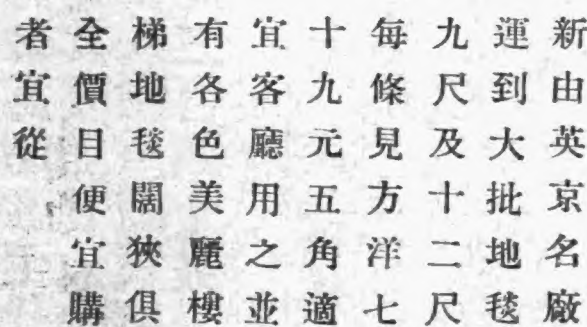 新由英京名廠
運到大批地毯
九尺及十二尺
每條見方洋七
十九元五角適
宜客廳用之並
有各色美麗樓
梯地毯闊狹俱
全價目便宜購
者宜從